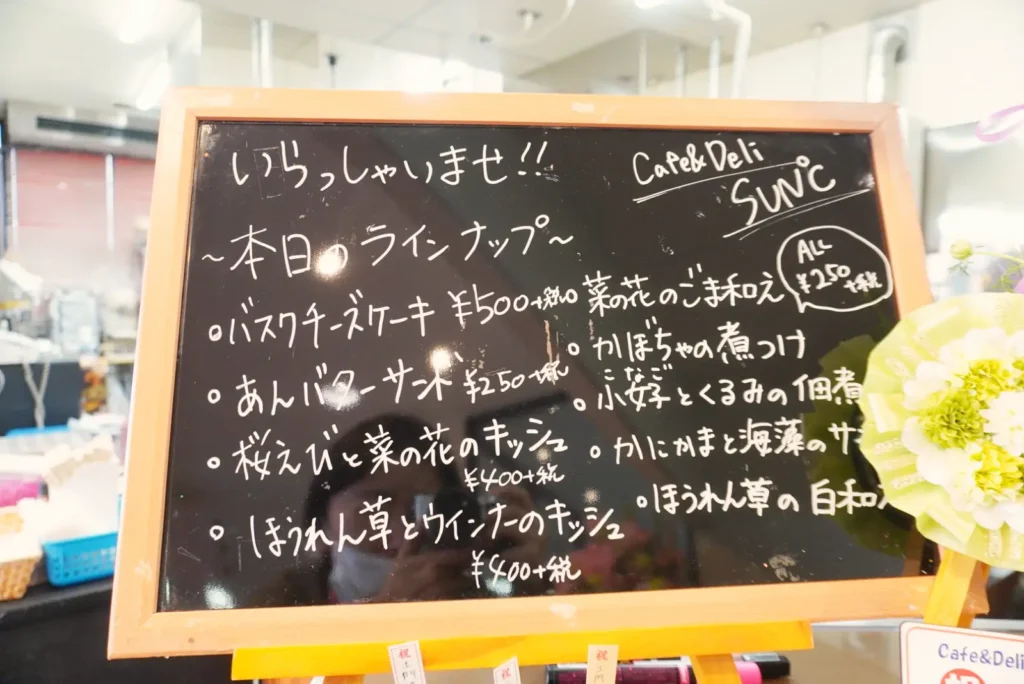 いらっしゃいませ!!
Cafe&Deli
SUN℃
~本日のラインナップ~
ALL
¥250
+税
○バスクチーズケーキ ¥500+税
○あんバターサンド ¥250+税
○桜えびと菜の花のキッシュ
¥400+税
○ほうれん草とウインナーのキッシュ
¥400+税
○菜の花のごま和え
○かぼちゃの煮つけ
こなご
○小女子とくるみの佃煮
○かにかまと海藻のサ
○ほうれん草の白和え
祝
祝
祝
Cafe&Deli
祝